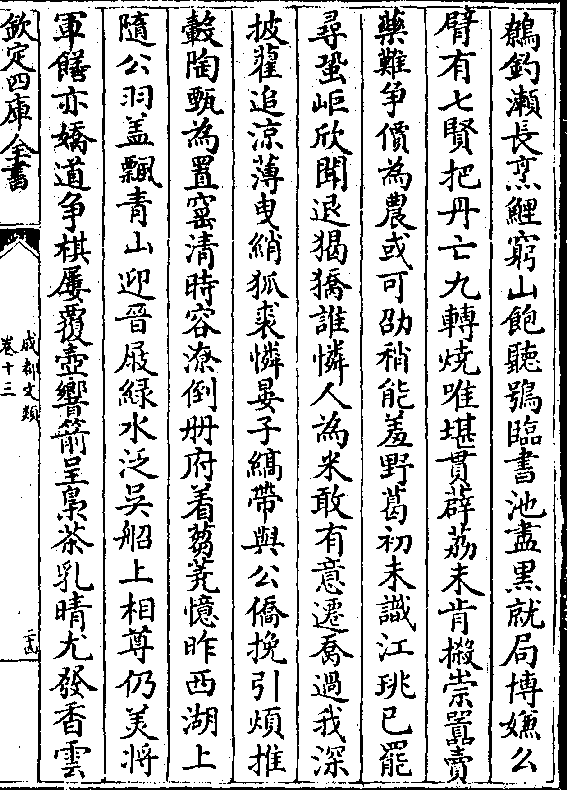 鵝釣瀨長烹鯉窮山飽聽鴞臨書池盡黒就局博嫌么
臂有七賢把丹亡九轉燒唯堪貫薜荔未肯搬崇嚚賣
藥難争價為農或可劭稍能羞野葛初未識江珧已罷
尋蛩岠欣聞退猲獢誰憐人為米敢有意遷喬過我深
披藋追涼薄曳綃狐裘憐晏子縞帶與公僑挽引煩推
轂陶甄為置窰清時容潦倒册府着蒭蕘憶昨西湖上
隨公羽盖飄青山迎晉屐緑水泛吳船上相尊仍美将
軍饍亦嬌道争棋屢覆壺響箭呈梟茶乳晴尤發香雲
欽定四庫全書
成都文類
卷十三